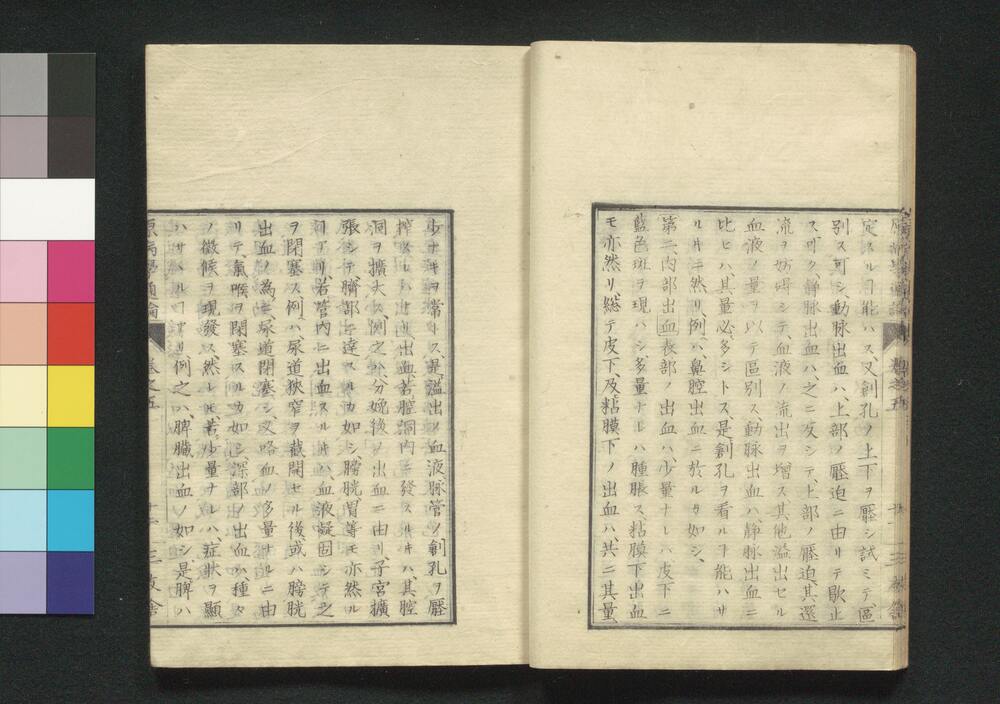 定スル ヿ能ハス、又創孔ノ上下ヲ壓シ試ミテ、區
別ス可シ、動脉出血ハ、上部ノ壓迫ニ由リテ歇止
スヿク、靜脉出血ハ之ニ反シテ、上部ノ壓迫、其還
流ヲ妨碍シテ、血液ノ流出ヲ增ス、其他溢出セル
血液ノ量ヲ以テ區別ス、動脉出血ハ、靜脉出血ニ
比ヒハ、其量必多シトス、是創孔ヲ看ルヿ能ハサ
ル片モ然リ、例ハ、鼻腔出血ニ於ルカ如シ、
第二、内部出血 表部ノ出血ハ、少量ナレハ、皮下ニ
藍色斑ヲ現ハシ、多量ナレハ腫脹ス、粘膜下出血
モ亦然リ、總テ皮下、及粘膜下ノ出血ハ、共ニ其量
少ナキヲ常トス、是溢出ノ血液脉管ノ創孔ヲ壓
搾スレハナリ、出血若腔洞内ニ發スル片ハ、其腔
洞ヲ擴大ス、例之ハ、分娩後ノ出血ニ由リ、子宮擴
張シテ、臍部ニ達スルカ如シ、膀胱、胃等モ亦然ル
ヿアリ、若管内ニ出血スル片ハ、血液凝固シテ之
ヲ閉塞ス、例ハ、尿道狹窄ヲ截開セル後、或ハ膀胱
出血ノ為ニ、尿道閉塞シ、又咯血ノ多量ナルニ由
リテ、氣喉ヲ閉塞スルカ如シ、深部ノ出血ハ、種々
ノ徴候ヲ現發ス、然レ𪜈、若少量ナレハ、症状ヲ顯
ハサヽルヿアリ、例之ハ、脾臓出血ノ如シ、是脾ハ
原病學通論 卷之五 三教舍